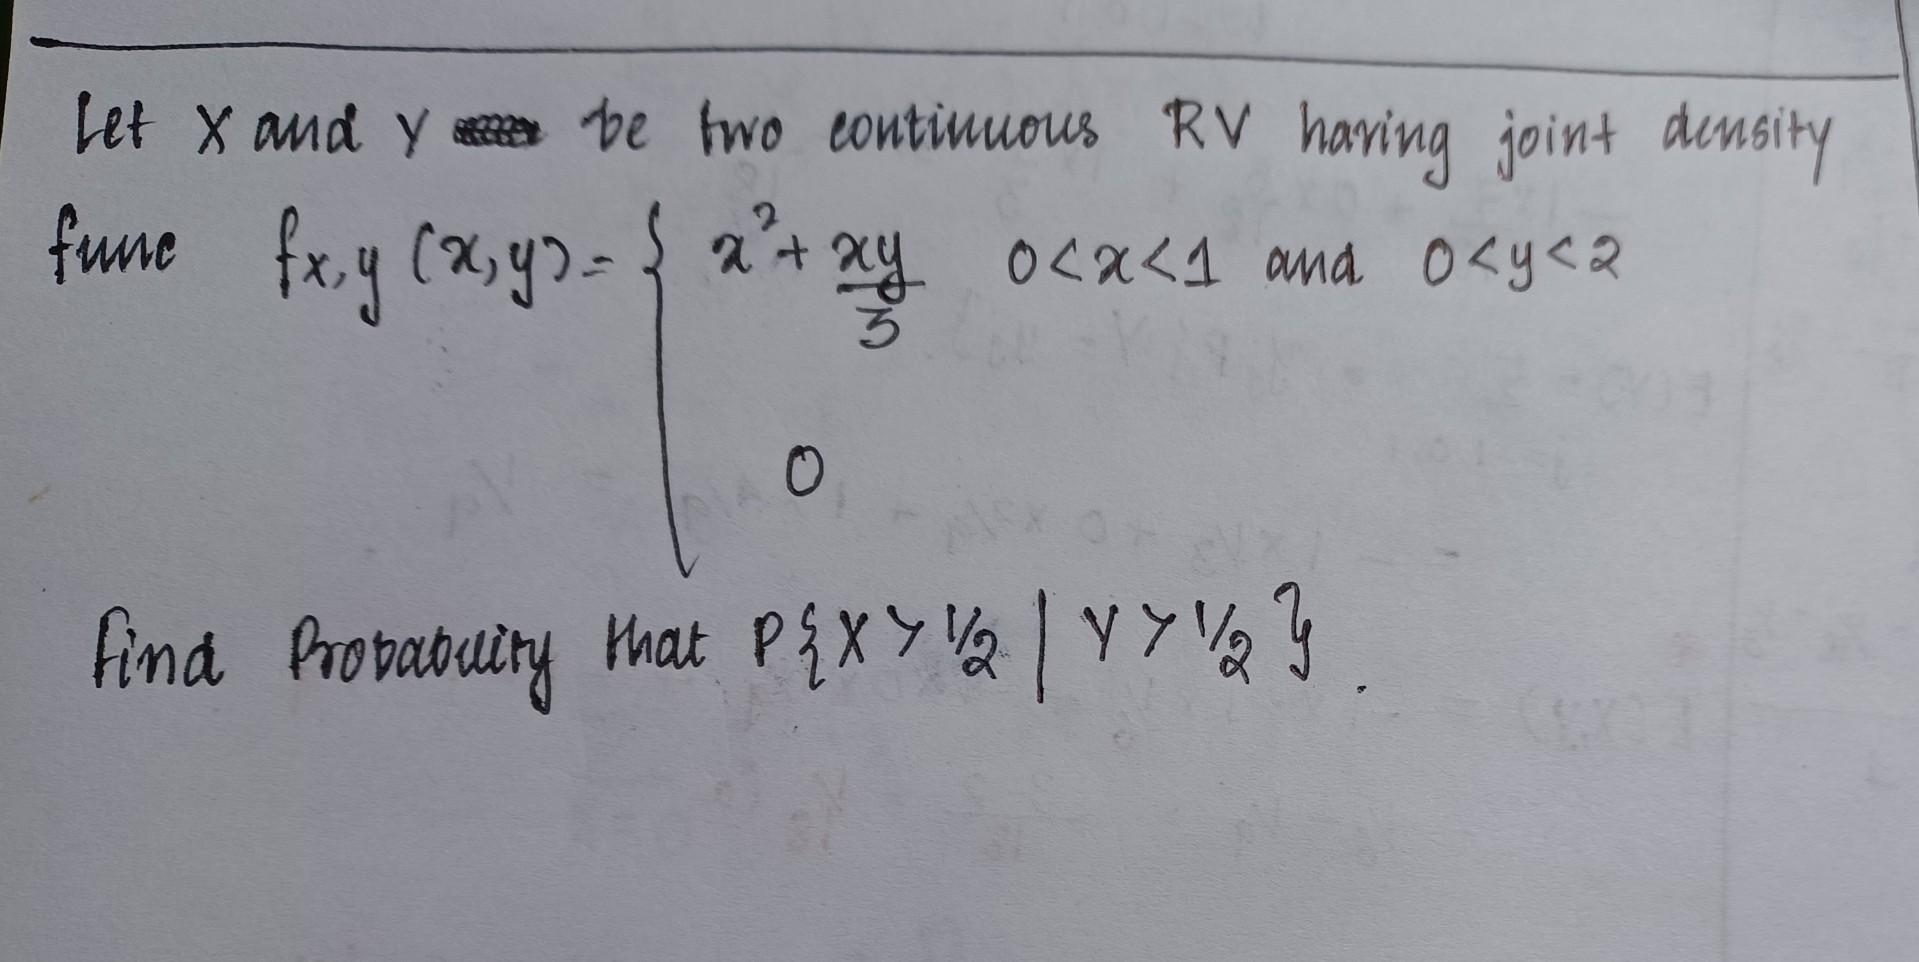 Let X and Y be two continuous RV having joint density
func fx,y (x,y) = { x² + xy/3 0<x<1 and 0<y<2
0
find Probability that P{X > 1/2 | Y > 1/2}.